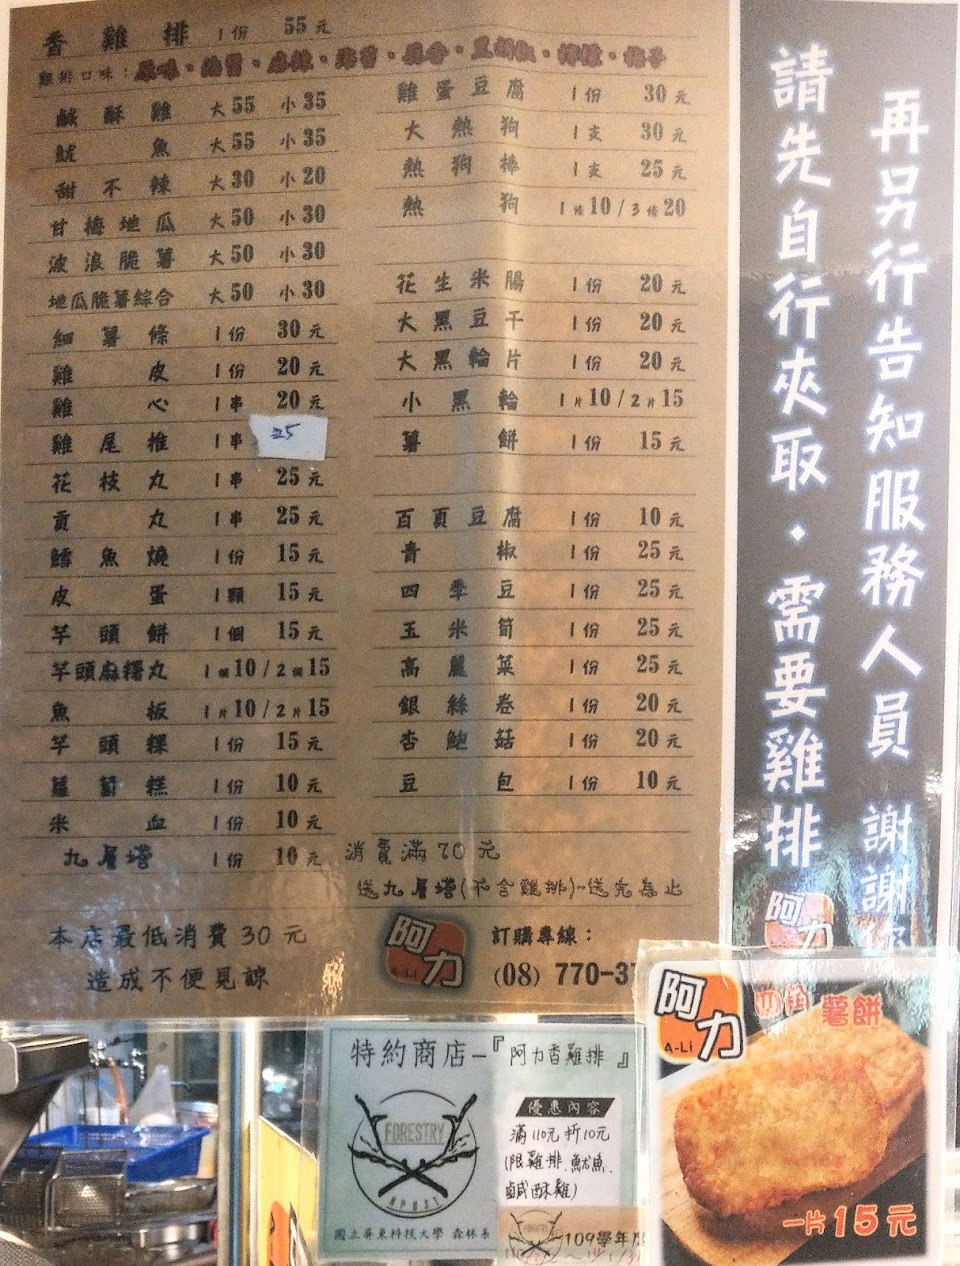 香雞排 1份 55元
雞排口味：原味・
鹹酥雞 大55 小35
魷魚 大55 小35
甜不辣 大30 小20
甘梅地瓜 大50 小30
波浪脆薯 大50 小30
地瓜脆薯綜合 大50 小30
細薯條 1份 30元
雞皮 1份 20元
雞心 1串 20元
雞尾椎 1串 25
花枝丸 1串 25元
貢丸 1串 25元
鱈魚燒 1份 15元
皮蛋 1顆 15元
芋頭餅 1個 15元
芋頭麻糬丸 1個10/2個15
魚板 1片10/2片15
芋頭粿 1份 15元
蘿蔔糕 1份 10元
米血 1份 10元
九層塔 1份 10元
雞蛋豆腐 1份 30元
大熱狗 1支 30元
熱狗棒 1支 25元
熱狗 1條10/3條20
花生米腸 1份 20元
大黑豆干 1份 20元
大黑輪片 1份 20元
小黑輪 1片10/2片15
薯餅 1份 15元
百頁豆腐 1份 10元
青椒 1份 25元
四季豆 1份 25元
玉米筍 1份 25元
高麗菜 1份 25元
銀絲卷 1份 20元
杏鮑菇 1份 20元
豆包 1份 10元
消費滿70元
送九層塔(不含雞排)~送完為止
本店最低消費30元
造成不便見諒
阿力
A-Li
訂購專線：
(08) 770-37
請先自行夾取・需要雞排
再另行告知服務人員 謝謝
阿力
特約商店—『阿力香雞排』
FORESTRY
NPUST
國立屏東科技大學 森林系
優惠內容
滿110元折10元
(限雞排.魷魚.
鹹酥雞)
FORESTRY
109學年度
阿力
A-Li
薯餅
一片15元